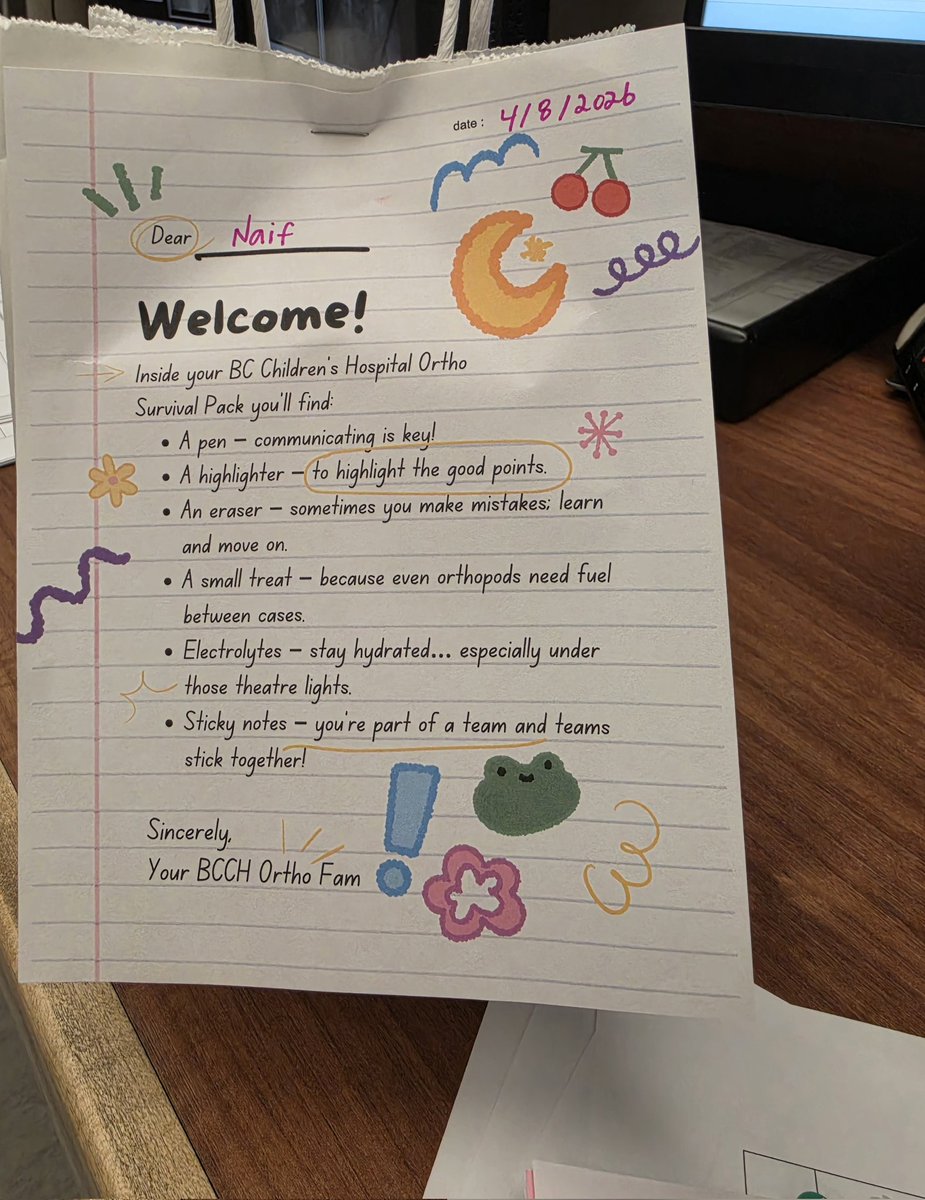 date : 4/8/2026
Dear Naif
Welcome!
Inside your BC Children's Hospital Ortho
Survival Pack you'll find:
• A pen – communicating is key!
• A highlighter – to highlight the good points.
• An eraser – sometimes you make mistakes; learn
and move on.
• A small treat – because even orthopods need fuel
between cases.
• Electrolytes – stay hydrated... especially under
those theatre lights.
• Sticky notes – you're part of a team and teams
stick together!
Sincerely,
Your BCCH Ortho Fam